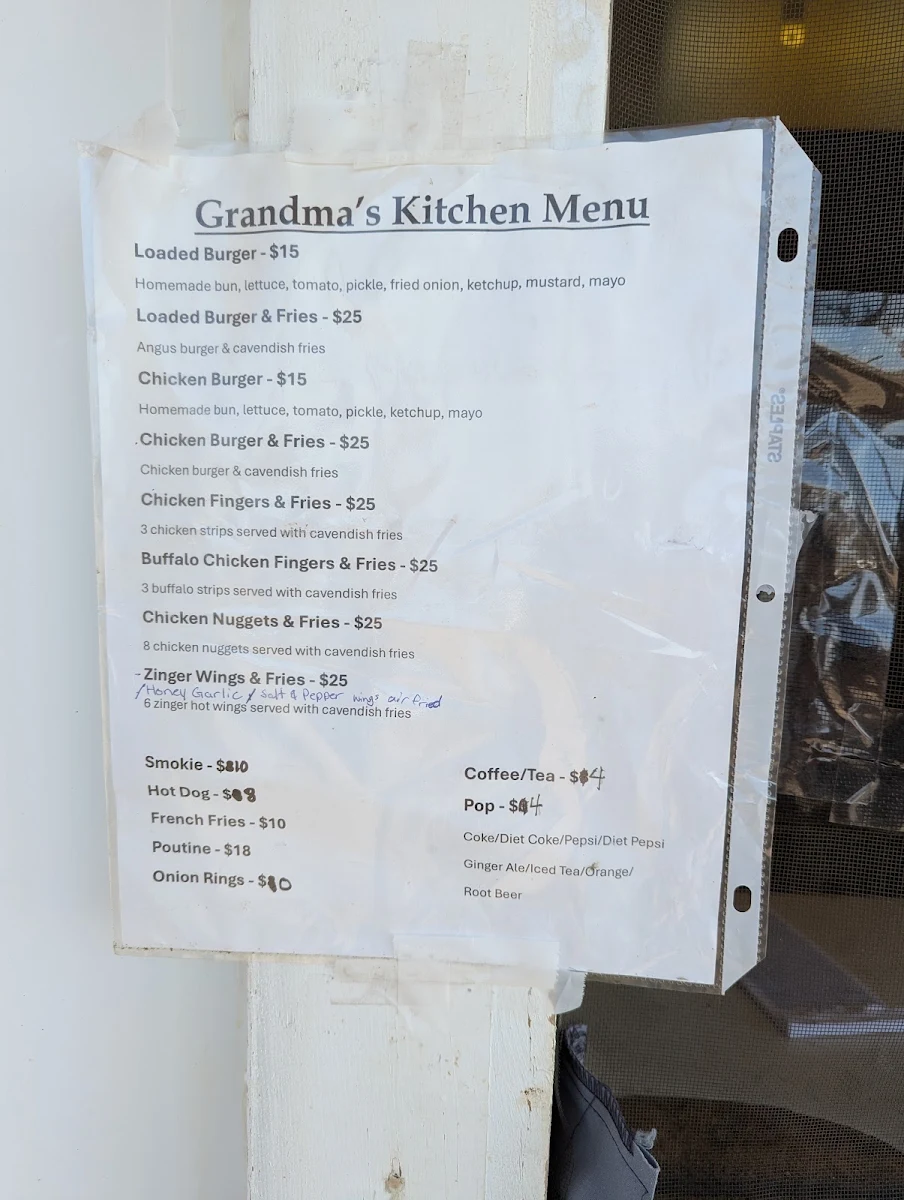 Grandma's Kitchen Menu
Loaded Burger - $15
Homemade bun, lettuce, tomato, pickle, fried onion, ketchup, mustard, mayo
Loaded Burger & Fries - $25
Angus burger & cavendish fries
Chicken Burger - $15
Homemade bun, lettuce, tomato, pickle, ketchup, mayo
Chicken Burger & Fries - $25
Chicken burger & cavendish fries
Chicken Fingers & Fries - $25
3 chicken strips served with cavendish fries
Buffalo Chicken Fingers & Fries - $25
3 buffalo strips served with cavendish fries
Chicken Nuggets & Fries - $25
8 chicken nuggets served with cavendish fries
- Zinger Wings & Fries - $25
/Honey Garlic / Salt & Pepper wings air fried
6 zinger hot wings served with cavendish fries
Smokie - $10
Hot Dog - $8
French Fries - $10
Poutine - $18
Onion Rings - $10
Coffee/Tea - $4
Pop - $4
Coke/Diet Coke/Pepsi/Diet Pepsi
Ginger Ale/Iced Tea/Orange/
Root Beer
STAPLES